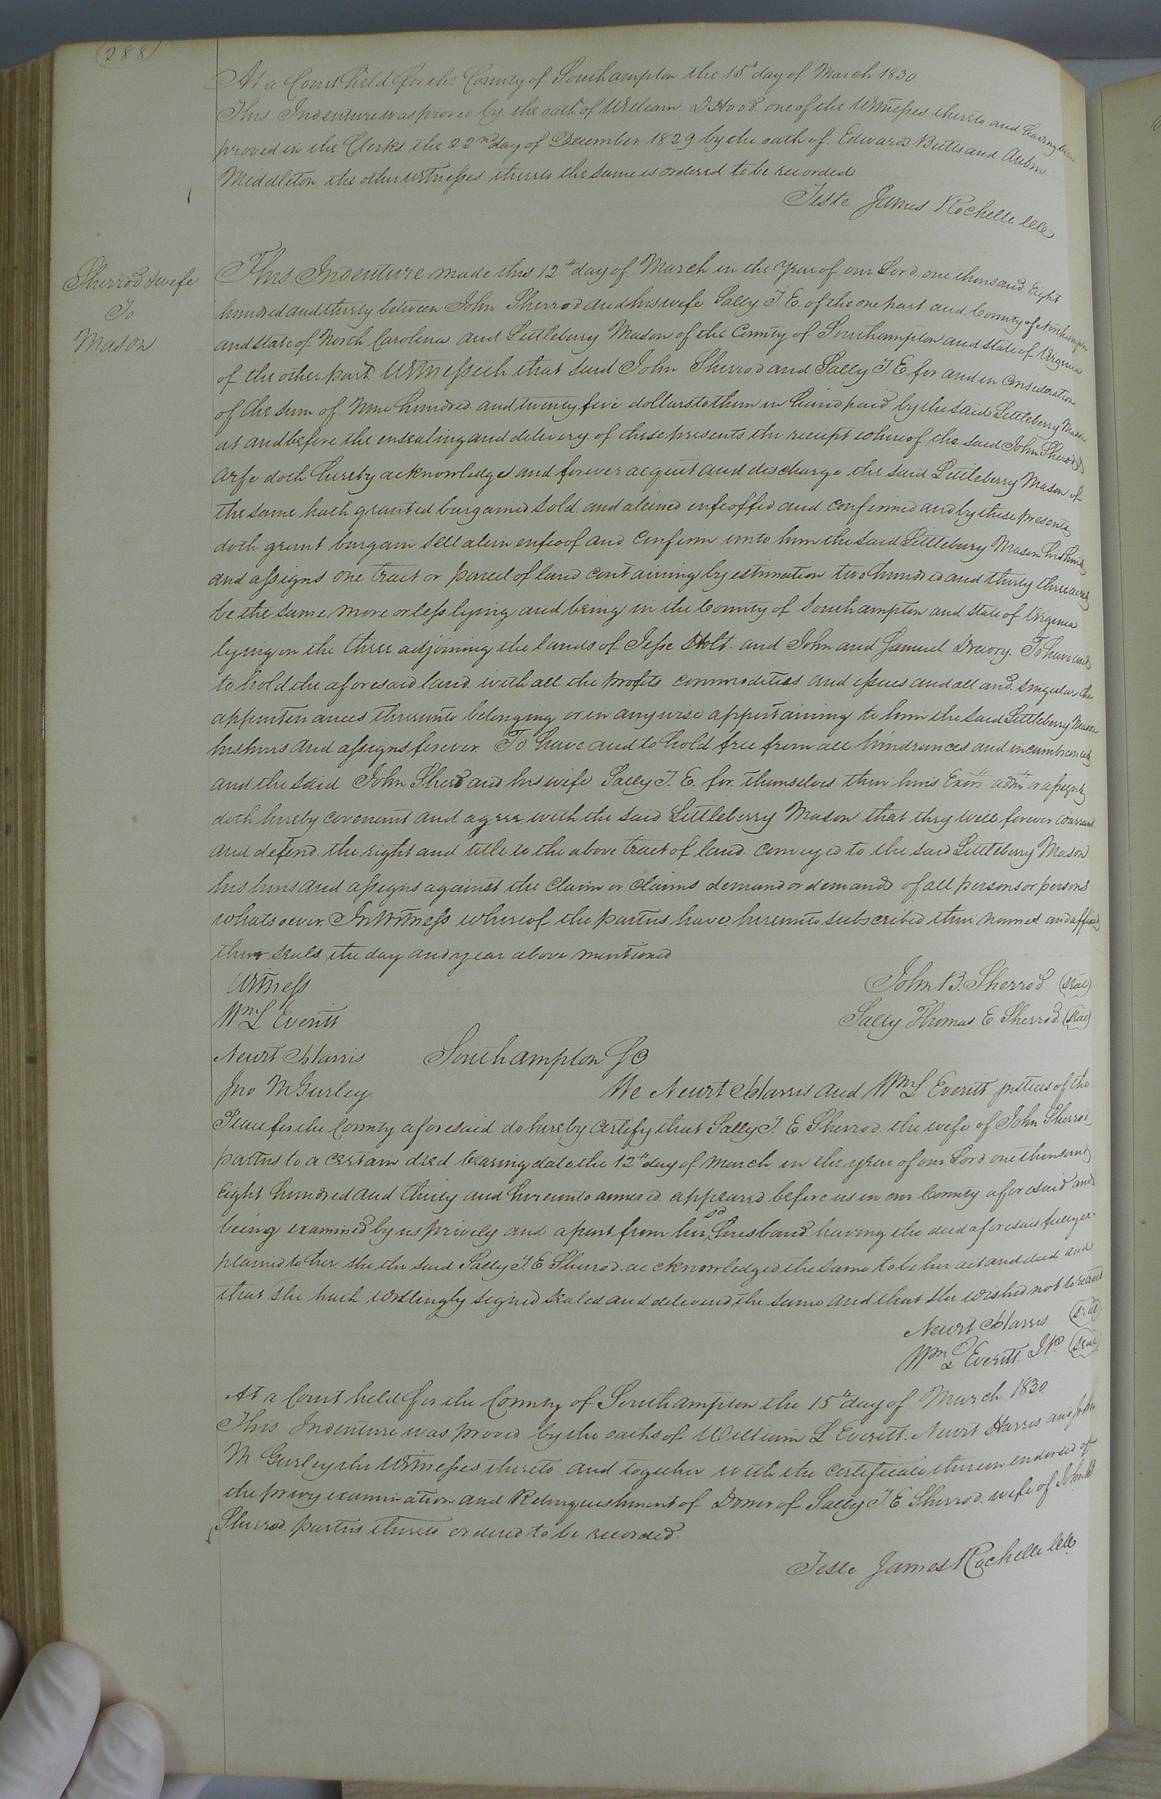 288
At a Court held for the County of Southampton the 15th day of March 1830
This Indenture was proved by the oath of William D Hood one of the Witnesses thereto and having been
proved in the Clerks the 22nd day of December 1829 by the oath of Edward Butts and
Middleton the other witnesses thereto the same is ordered to be recorded
Teste James Rochelle Clk
Sherrod & wife
To
Mason
This Indenture made this 12th day of March in the Year of our Lord one thousand Eight
hundred and thirty between John Sherrod and his wife Sally T. E. of the one part and County of Northampton
and state of North Carolina and Littlebury Mason of the County of Southampton and state of Virginia
of the other part Witnesseth that said John Sherrod and Sally T. E. for and in Consideration
of the sum of Nine hundred and twenty five dollars to them in hand paid by the said Littleberry Mason
at and before the ensealing and delivery of these presents the receipt whereof the said John Sherrod
doth hereby acknowledge and forever acquit and discharge the said Littleberry Mason of
the same hath granted bargained sold and aliened enfeoffed and confirmed and by these presents
doth grant bargain sell alien enfeoof and Confirm unto him the said Littlebury Mason his heirs
and assigns one tract or parcel of land containing by estimation two hundred and thirty three acres
be the same more or less lying and being in the County of Southampton and state of Virginia
lying on the three adjoining the lands of Jesse Holt and John and Samuel Drewry. To have and
to hold the aforesaid land with all the profits commodities and issues and all and singular the
appurtenances thereunto belonging or in anywise appertaining to him the said Littleberry Mason
his heirs and assigns forever To have and to hold free from all hindrances and incumbrances
and the said John Sherrod and his wife Sally T. E. for themselves their heirs Exors adms or assigns
doth hereby covenant and agree with the said Littleberry Mason that they will forever warrant
and defend the right and title to the above tract of land conveyed to the said Littlebury Mason
his heirs and assigns against the claim or claims demand or demands of all persons or persons
whatsoever In Witness whereof the parties have hereunto subscribed their names and affixed
their seals the day and year above mentioned
Witness
John B. Sherrod (seal)
Wm L Everitt
Sally Thomas E Sherrod (seal)
Newit Harris Southampton
Jno M Gurley We Newit Harris and Wm L Everitt justices of the
Peace for the County aforesaid do hereby certify that Sally T. E Sherrod the wife of John Sherrod
parties to a certain deed bearing date the 12th day of March in the year of our Lord one thousand
Eight hundred and thirty and hereunto annexed appeared before us in our County aforesaid and
being examined by us privily and apart from her sd husband having the deed aforesaid fully ex-
plained to her she the said Sally T. E Sherrod acknowledged the same to be her act and deed and
that she hath willingly signed sealed and delivered the same and that she wished not to retract
Newit Harris (seal)
Wm L Everitt J.P. (seal)
At a Court held for the County of Southampton the 15th day of March 1830
This Indenture was proved by the oaths of William L Everitt Newit Harris and John
M Gurley the Witnesses thereto and together with the certificate thereon endorsed of
the privy examination and Relinquishment of Dower of Sally T E Sherrod wife of John B
Sherrod parties thereto ordered to be recorded.
Teste James Rochelle Clk